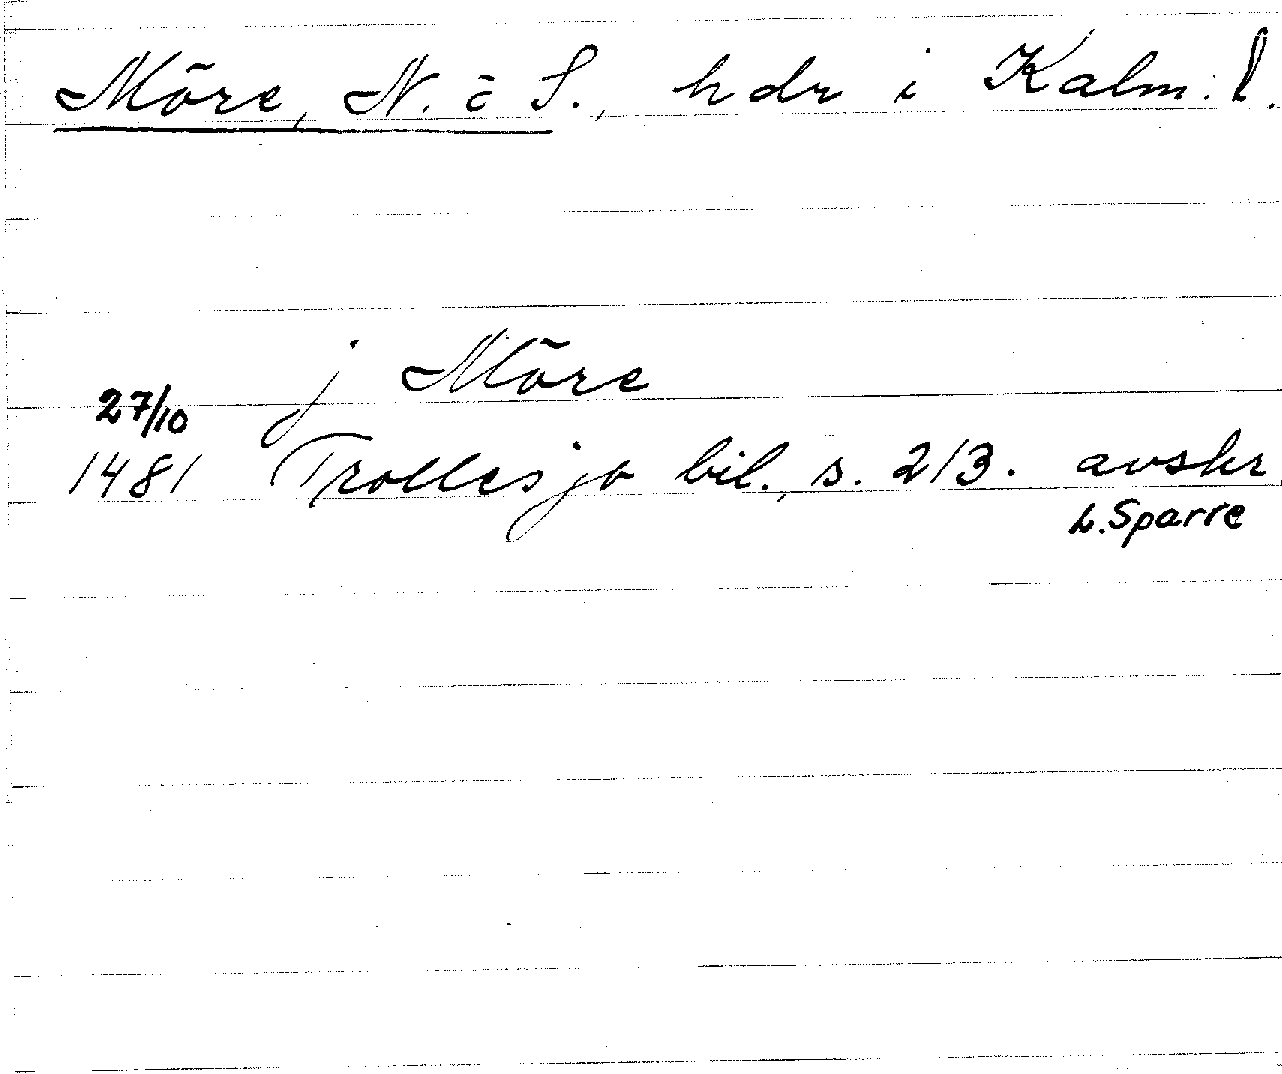 Möre, N. o S., hdr i Kalm. l.
j Möre
27/10
1481 Trolles jb bil., s. 213. avskr
L. Sparre